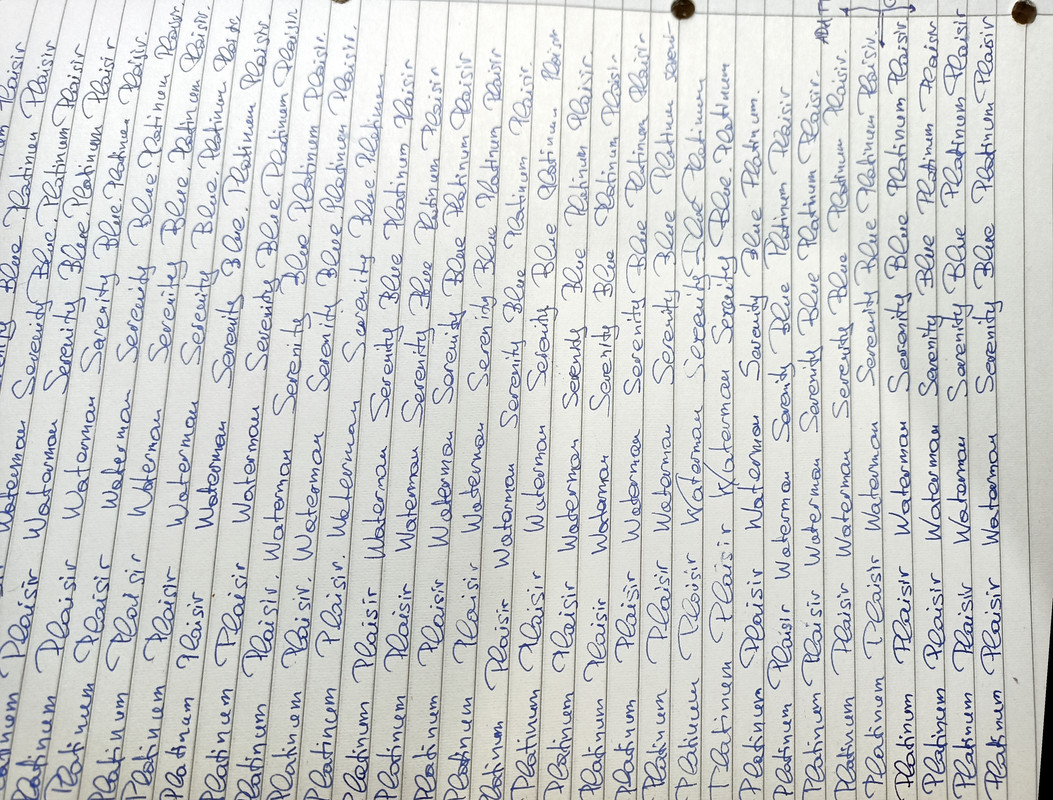 Blue Platinum Plaisir
Serenity Blue Platinum Plaisir
Waterman Serenity Blue Platinum Plaisir
Platinum Plaisir Waterman Serenity Blue Platinum Plaisir
Platinum Plaisir Waterman Serenity Blue Platinum Plaisir
Platinum Plaisir Waterman Serenity Blue Platinum Plaisir.
Platinum Plaisir Waterman Serenity Blue. Platinum Plaisir.
Platinum Plaisir Waterman Serenity Blue. Platinum Plaisir
Platinum Plaisir Waterman Serenity Blue Platinum Plaisir.
Platinum Plaisir Waterman Serenity Blue. Platinum Plaisir
Platinum Plaisir. Waterman Serenity Blue Platinum Plaisir.
Platinum Plaisir. Waterman Serenity Blue. Platinum Plaisir.
Platinum Plaisir. Waterman Serenity Blue. Platinum
Platinum Plaisir Waterman Serenity Blue Platinum Plaisir
Platinum Plaisir Waterman Serenity Blue Platinum Plaisir
Platinum Plaisir Waterman Serenity Blue Platinum Plaisir
Platinum Plaisir Waterman Serenity Blue Platinum Plaisir
Platinum Plaisir Waterman Serenity Blue Platinum Plaisir.
Platinum Plaisir Waterman Serenity Blue Platinum Plaisir
Platinum Plaisir Waterman Serenity Blue Platinum Plaisir.
Platinum Plaisir Waterman Serenity Blue Platinum Plaisir.
Platinum Plaisir Waterman Serenity Blue Platinum Plaisir
Platinum Plaisir Waterman Serenity Blue Platinum
Platinum Plaisir Waterman Serenity Blue Platinum
Platinum Plaisir Waterman Serenity Blue. Platinum
Platinum Plaisir Waterman Serenity Blue Platinum.
Platinum Plaisir Waterman Serenity Blue Platinum Plaisir
Platinum Plaisir Waterman Serenity Blue Platinum Plaisir.
Platinum Plaisir Waterman Serenity Blue Platinum Plaisir.
Platinum Plaisir Waterman Serenity Blue Platinum Plaisir.
Platinum Plaisir Waterman Serenity Blue Platinum Plaisir
Platinum Plaisir Waterman Serenity Blue Platinum Plaisir
Platinum Plaisir Waterman Serenity Blue Platinum Plaisir
Platinum Plaisir Waterman Serenity Blue Platinum Plaisir